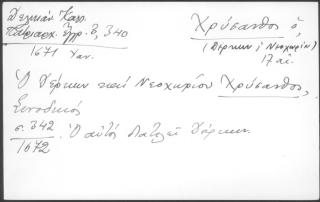 Δελικάν Καλ.
Πατριαρχ. Ἔγγρ. Β, 340
1671 Ἰαν.
Χρύσανθος ὁ,
(Δέρκων & Νεοχωρίου)
17 αἰ.
Ὁ Δέρκων καὶ Νεοχωρίου Χρύσανθος,
Συνοδικός
σ. 342
1672. Ὁ αὐτὸς Δέρκων.